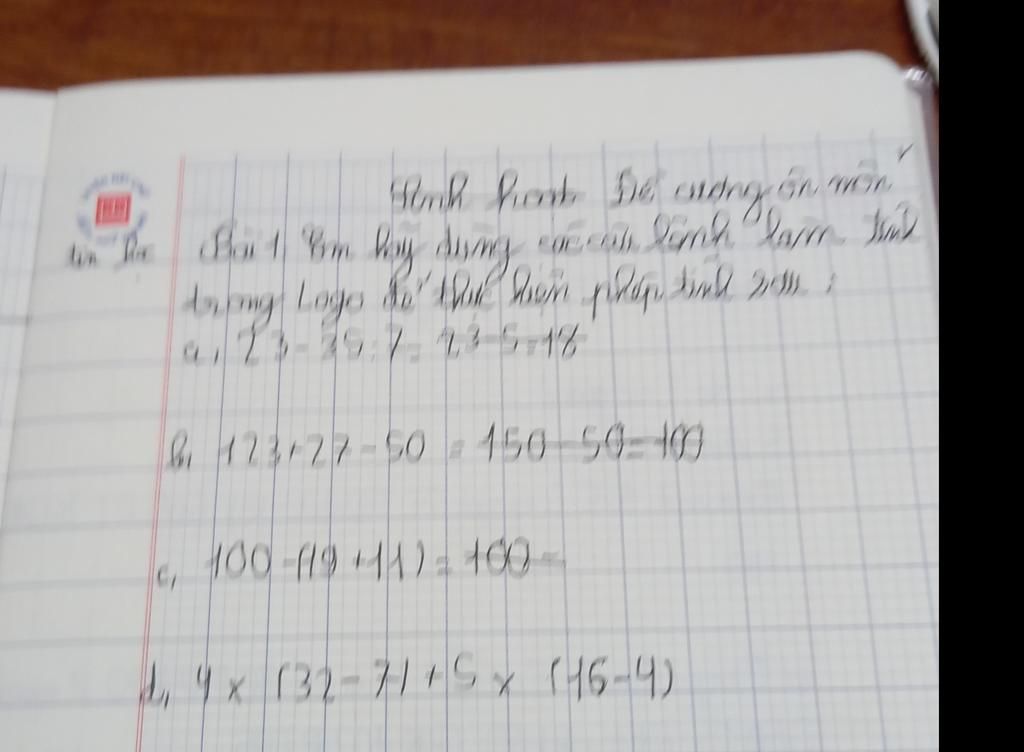 Đề cương ôn môn
tin học Bài 1, Em hãy dùng các câu lệnh làm tính
trong Logo để thực hiện phép tính sau:
a, 23 - 35 : 7 = 23 - 5 = 18
b, 123 + 27 - 50 = 150 - 50 = 100
c, 100 - (19 + 11) = 100 -
d, 4 x (32 - 7) + 5 x (16 - 4)